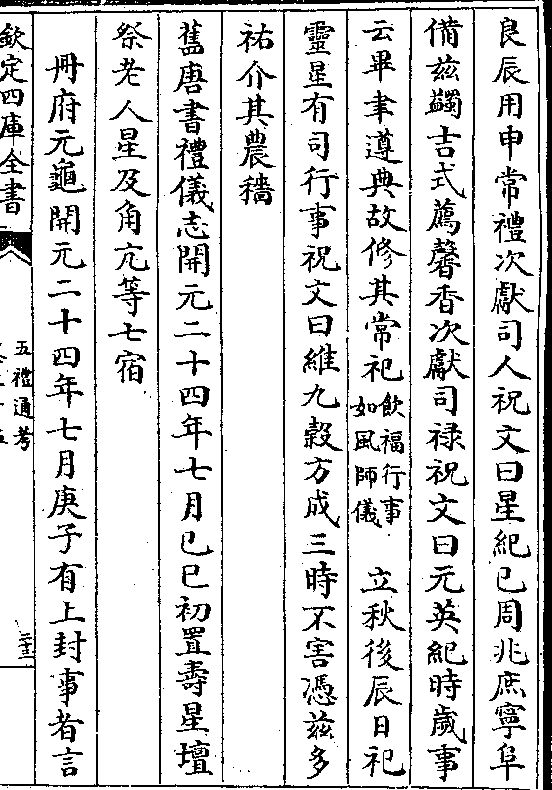 良辰用申常禮次獻司人祝文曰星紀已周兆庶寧阜
備兹蠲吉式薦馨香次獻司祿祝文曰元英紀時歲事
云畢聿遵典故修其常祀飲福行事如風師儀 立秋後辰日祀
靈星有司行事祝文曰維九穀方成三時不害憑兹多
祐介其農穡
舊唐書禮儀志開元二十四年七月己巳初置壽星壇
祭老人星及角亢等七宿
冊府元龜開元二十四年七月庚子有上封事者言
欽定四庫全書
五禮通考